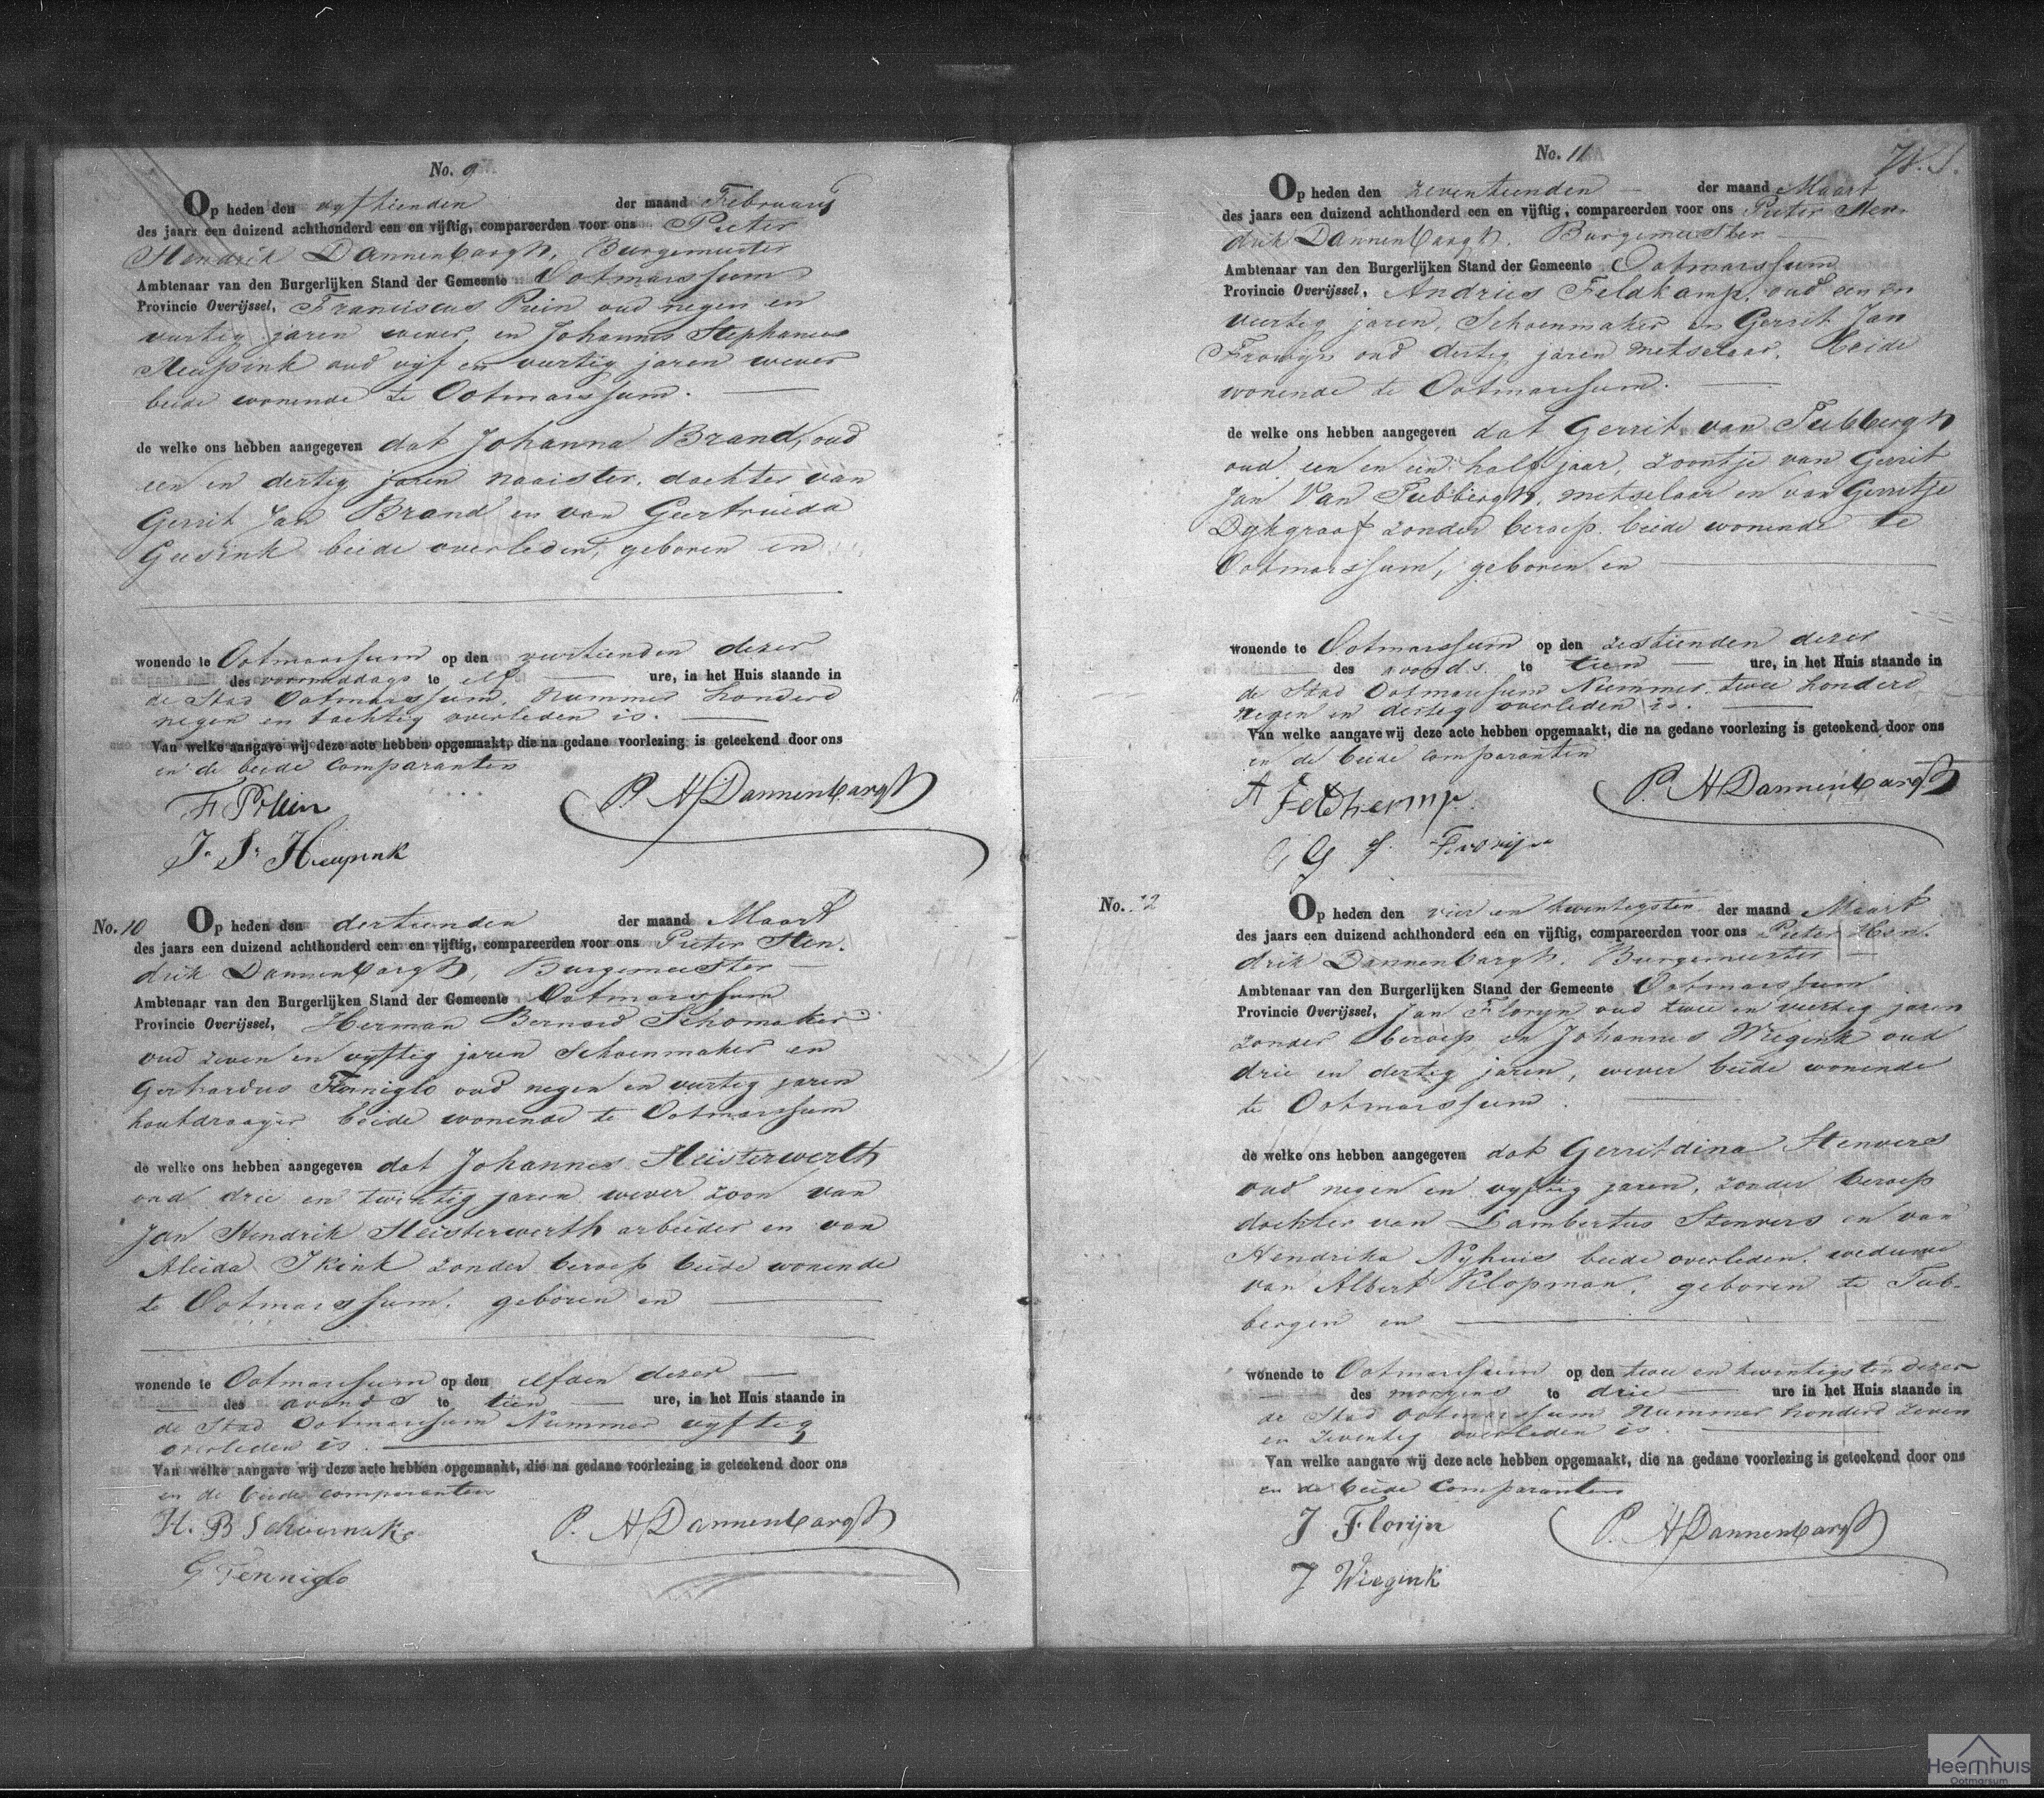 No. 9
Op heden den vyftienden der maand Februarij
des jaars een duizend achthonderd een en vijftig, compareerden voor ons Pieter
Hendrik Dannenbargh, Burgemeester
Ambtenaar van den Burgerlijken Stand der Gemeente Ootmarssum
Provincie Overijssel, Franciscus Prin oud negen en
veertig jaren wever, en Johannes Stephanus
Heupink oud vyf en veertig jaren wever
beide wonende te Ootmarssum.
de welke ons hebben aangegeven dat Johanna Brand, oud
een en dertig jaren naaister, dochter van
Gerrit Jan Brand en van Geertruida
Geerink beide overleden, geboren en
wonende te Ootmarssum op den veertienden dezer
des voormiddags te elf ure, in het Huis staande in
de Stad Ootmarssum, Nummer honderd
negen en tachtig overleden is.
Van welke aangave wij deze acte hebben opgemaakt, die na gedane voorlezing is geteekend door ons
en de beide comparanten
P. H Dannenbargh
J. S. Heupink
No. 10
Op heden den dertienden der maand Maart
des jaars een duizend achthonderd een en vijftig, compareerden voor ons Pieter Hen-
drik Dannenbargh, Burgemeester
Ambtenaar van den Burgerlijken Stand der Gemeente Ootmarssum
Provincie Overijssel, Herman Bernard Schomaker
oud zeven en vyftig jaren Schoenmaker en
Gerhardus Fenniglo oud negen en veertig jaren
houtdraager beide wonende te Ootmarssum
de welke ons hebben aangegeven dat Johannes Heisterwerth
oud drie en twintig jaren wever zoon van
Jan Hendrik Heisterwerth arbeider en van
Aleida Ikink zonder beroep beide wonende
te Ootmarssum. geboren en
wonende te Ootmarssum op den elfden dezer
des avonds te tien ure, in het Huis staande in
de Stad Ootmarssum Nummer vyftig
overleden is.
Van welke aangave wij deze acte hebben opgemaakt, die na gedane voorlezing is geteekend door ons
en de beide comparanten
H. B Schoemake
P. H Dannenbargh
G Fenniglo
No. 11
Op heden den zeventienden der maand Maart
des jaars een duizend achthonderd een en vijftig, compareerden voor ons Pieter Hen-
drik Dannenbargh. Burgemeester
Ambtenaar van den Burgerlijken Stand der Gemeente Ootmarssum
Provincie Overijssel, Andries Feldkamp, oud een en
veertig jaren, Schoenmaker en Gerrit Jan
Frowijn oud dertig jaren metselaar, beide
wonende te Ootmarssum.
de welke ons hebben aangegeven dat Gerrit van Tubbergh
oud een en een half jaar, zoontje van Gerrit
Jan Van Tubbergh, metselaar en van Gerritje
Dykgraaf zonder beroep. beide wonende te
Ootmarssum, geboren en
wonende te Ootmarssum op den zestienden dezer
des avonds te tien ure, in het Huis staande in
de Stad Ootmarssum Nummer twee honderd
negen en dertig overleden is.
Van welke aangave wij deze acte hebben opgemaakt, die na gedane voorlezing is geteekend door ons
en de beide comparanten
A Feldkamp
P. H Dannenbargh
G J Frowijn
No. 12
Op heden den vier en twintigsten der maand Maart
des jaars een duizend achthonderd een en vijftig, compareerden voor ons Pieter Hen-
drik Dannenbargh. Burgemeester
Ambtenaar van den Burgerlijken Stand der Gemeente Ootmarssum
Provincie Overijssel, Jan Floryn oud twee en veertig jaren
zonder beroep en Johannes Wiegink oud
drie en dertig jaren, wever beide wonende
te Ootmarssum.
de welke ons hebben aangegeven dat Gerritdina Stenvers
oud negen en vyftig jaren, zonder beroep
dochter van Lambertus Stenvers en van
Hendrika Nyhuis beide overleden. weduwe
van Albert Klopman, geboren te Tub-
bergen en
wonende te Ootmarssum op den twee en twintigsten dezer
des morgens te drie ure in het Huis staande in
de Stad Ootmarssum Nummer honderd zeven
en zeventig overleden is.
Van welke aangave wij deze acte hebben opgemaakt, die na gedane voorlezing is geteekend door ons
en de beide Comparanten
J Florijn
P. H Dannenbargh
J Wiegink
Heemhuis
Ootmarsum